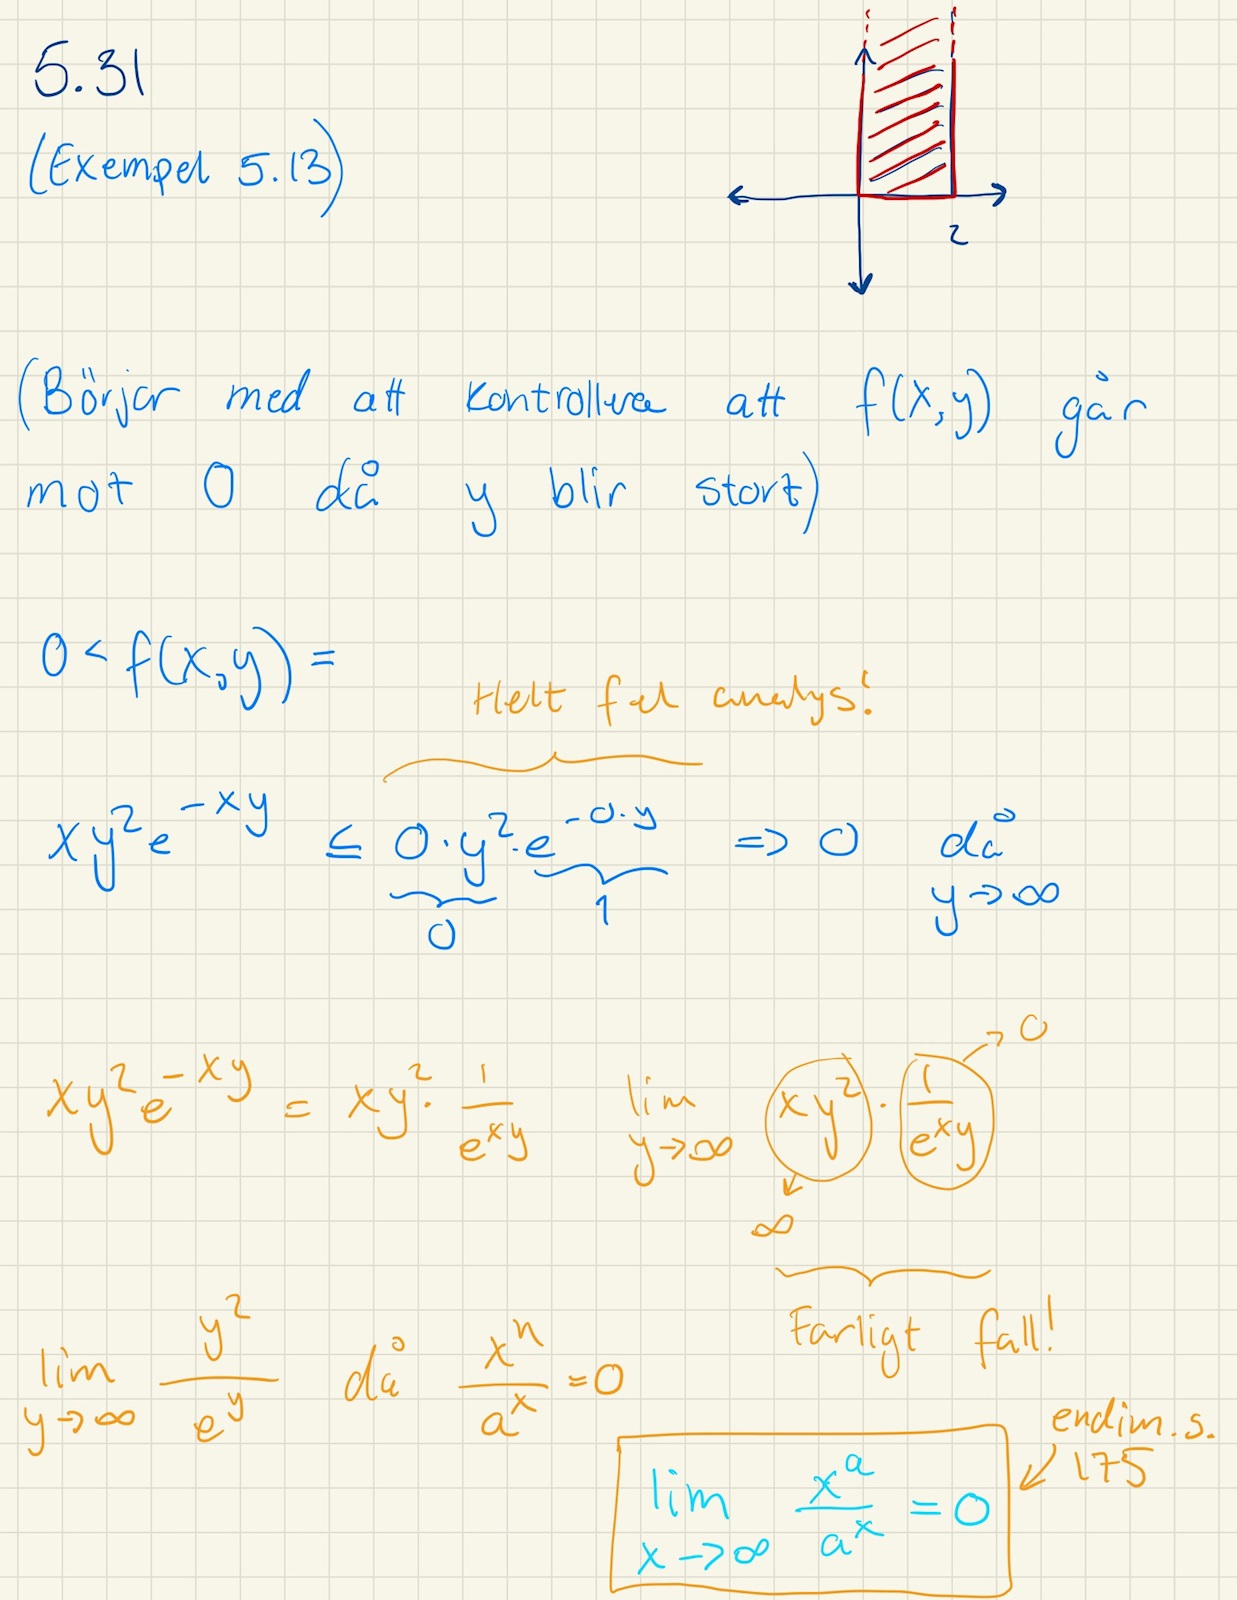 5.31
(Exempel 5.13)
2
(Börjar med att kontrollera att f(x,y) går
mot 0 då y blir stort)
0 < f(x,y) =
Helt fel analys!
xy²e^{-xy} ≤ 0·y²·e^{-0·y} => 0 då
y→∞
0 1
xy²e^{-xy} = xy²· 1/e^{xy} lim y→∞ xy² · 1/e^{xy} → 0
∞
Farligt fall!
lim y→∞ y²/e^y då x^n/a^x = 0
endim. s.
175
lim x→∞ x^a/a^x = 0